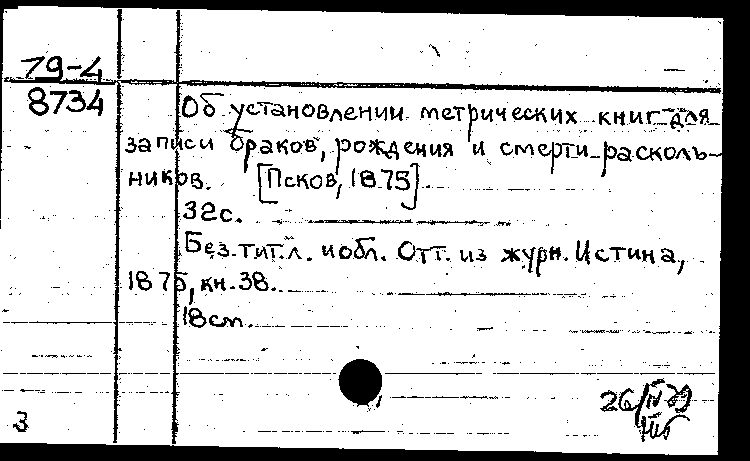 79-4
8734
Об установлении метрических книг для
записи браков, рождения и смерти расколь-
ников. [Псков, 1875]
32с.
Без тит.л. и обл. Отт. из журн. Истина,
1875, кн. 38.
18см.
26/IV 79
3